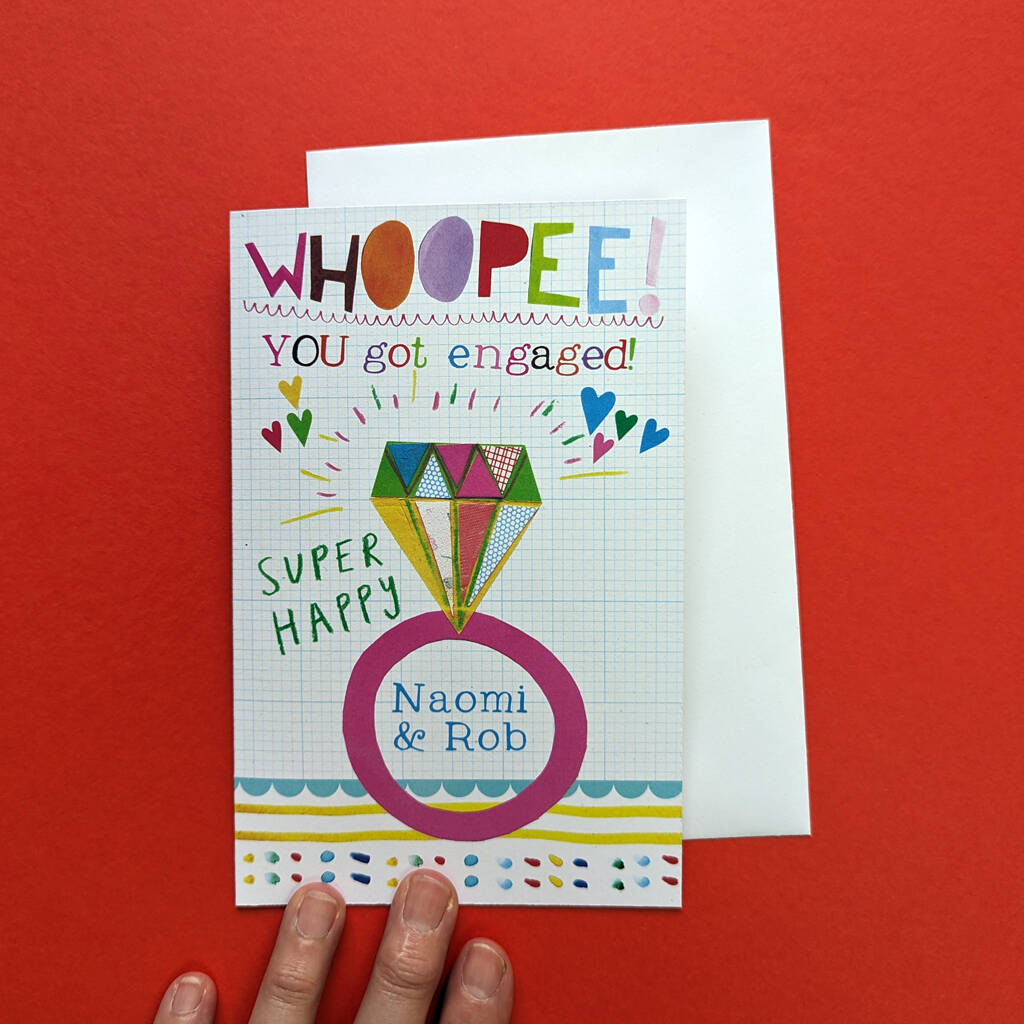 WHOOPEE!
YOU got engaged!
SUPER
HAPPY
Naomi
& Rob